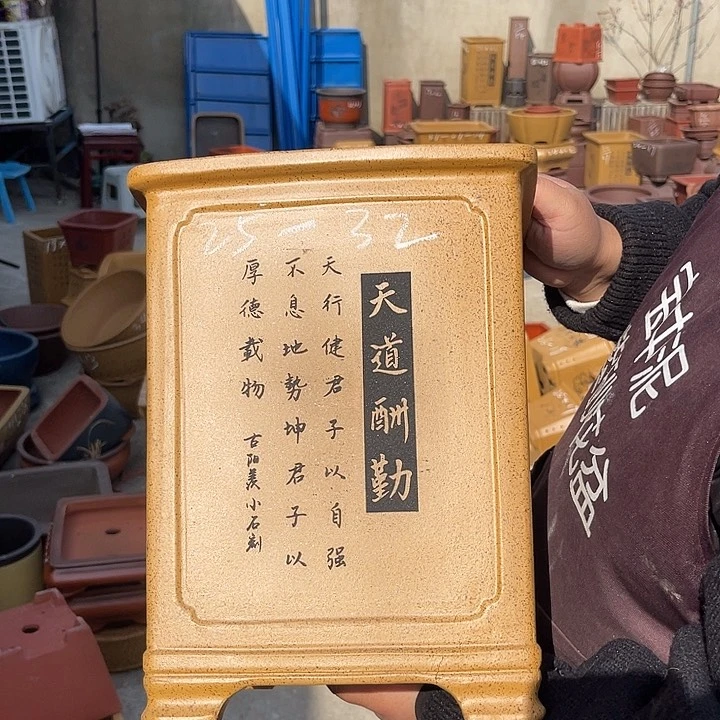 25-32
天道酬勤
天行健君子以自强
不息地势坤君子以
厚德载物
古阳羡小石制